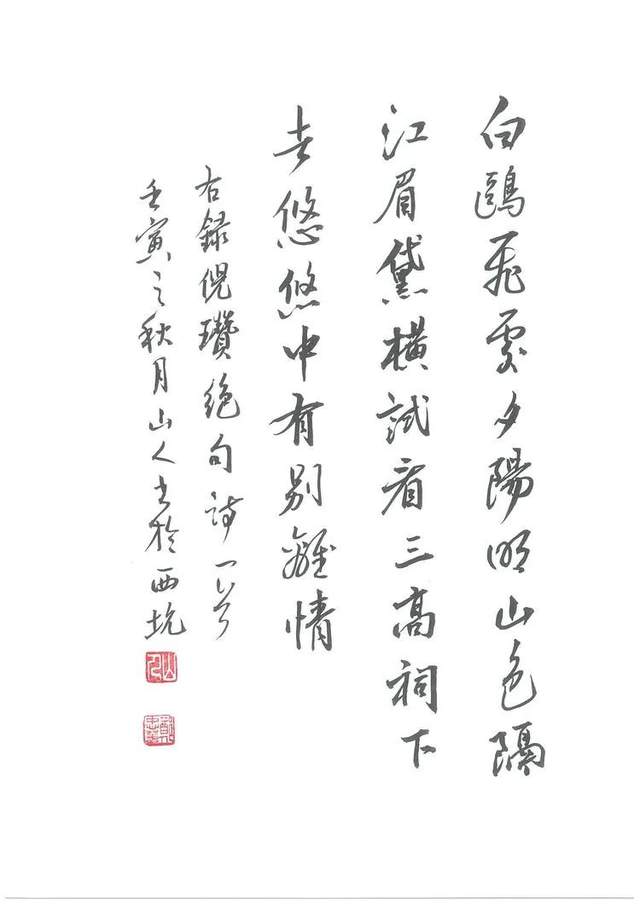 白鷗飛處夕陽明山色隔
江眉黛橫試看三高祠下
去悠悠中有別離情
右録倪瓚絕句詩一首
壬寅之秋月山人书於西坑
山人